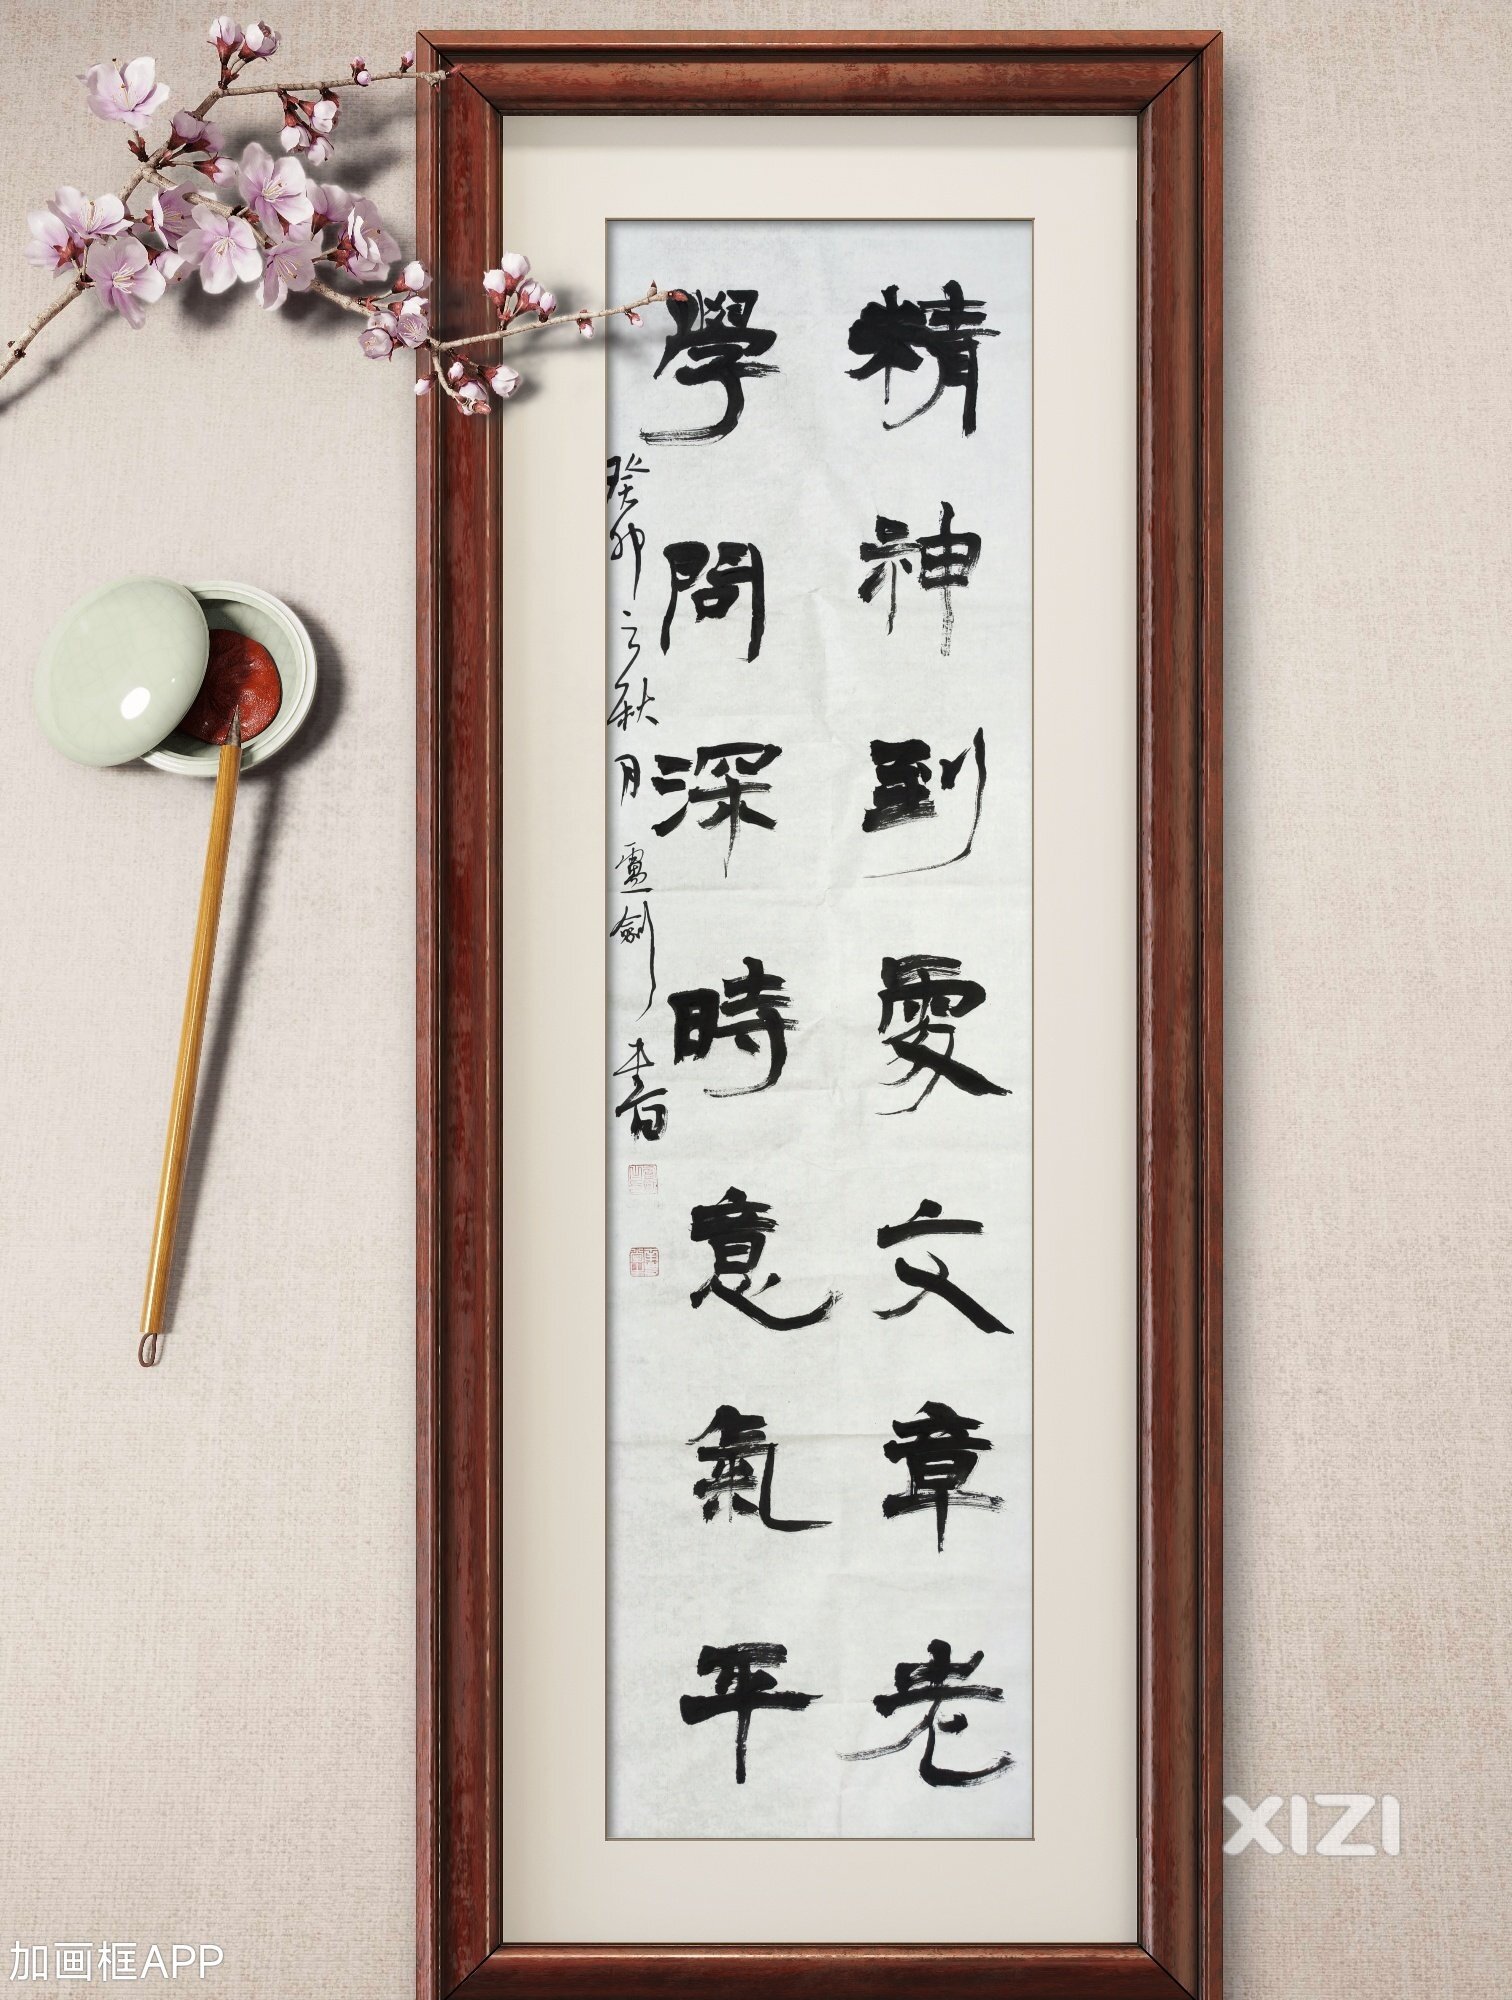 精神到處文章老
學問深時意氣平
癸卯之秋月盧劍書
XIZI
加画框APP